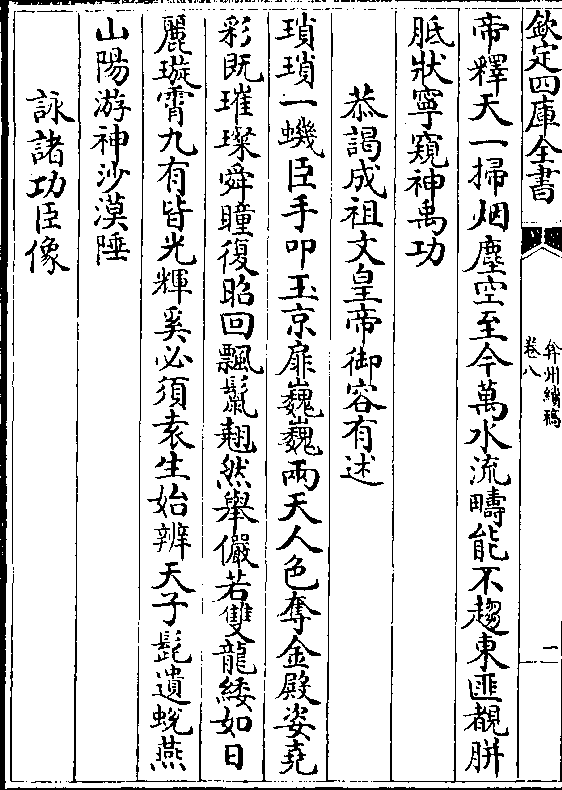 欽定四庫全書
弇州續稿
卷八
一
帝釋天一掃烟塵空至今萬水流疇能不趨東匪覩胼
胝狀寧窺神禹功
恭謁成祖文皇帝御容有述
瑣瑣一蟣臣手叩玉京扉巍巍兩天人色奪金殿姿堯
彩既璀璨舜瞳復昭回飄鬣翹然舉儼若雙龍緌如日
麗璇霄九有皆光輝奚必須袁生始辨天子髭遺蛻燕
山陽游神沙漠陲
詠諸功臣像